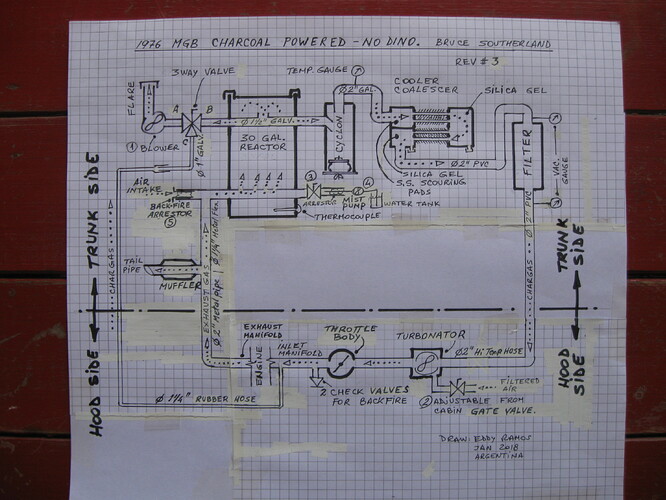 1976 MGB CHARCOAL POWERED - NO DINO. BRUCE SOUTHERLAND
REV # 3
FLARE
3WAY VALVE
A B
C
① BLOWER
Ø 1" GALV.
Ø 1½" GALV.
30 GAL.
REACTOR
TEMP. GAUGE
Ø 2" GAL.
CYCLON
COOLER
COALESCER
SILICA GEL
SILICA GEL
S.S. SCOURING
PADS
Ø 2" PVC
FILTER
VAC.
GAUGE
Ø 2" PVC
AIR
INTAKE
BACKFIRE
ARRESTOR
⑤
③
ARRESTOR
MIST
PUMP
④
WATER TANK
THERMOCOUPLE
TRUNK SIDE
HOOD SIDE
CHARGAS
TAIL
PIPE
MUFFLER
EXHAUST GAS
Ø 2" Metal pipe | Ø 1¼" Metal Flex
CHARGAS
TRUNK
SIDE
HOOD
SIDE
EXHAUST
MANIFOLD
INLET
MANIFOLD
ENGINE
THROTTLE
BODY
TURBONATOR
Ø2" Hi Temp HOSE
FILTERED
AIR
2 CHECK VALVES
FOR BACKFIRE
② ADJUSTABLE FROM
CABIN GATE VALVE.
Ø 1¼" RUBBER HOSE
DRAW: EDDY RAMOS
JAN 2018
ARGENTINA